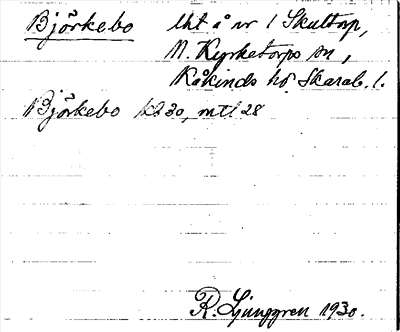 Björkebo lht å nr 1 Skultorp,
N. Kyrketorps sn,
Kåkinds hd Skarab. l.
Björkebo k230, mtl 28
R. Ljunggren 1930.